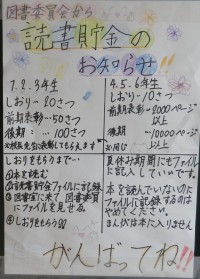 図書委員会から
読書貯金の
お知らせ!!
1.2.3年生
しおり…20さつ
前期表彰…50さつ
後期: …100さつ
しおりをもらうまで…
①本を読む
②読書貯金ファイルに記録
③図書室に来て図書委員
にファイルを見せる。
④しおりをもらう
4.5.6年生
しおり…10さつ
前期表彰…2000ページ
以上
後期 …10000ページ
以上
夏休み期間にもファイル
に記入していいです。
本を読んでいないのに
ファイルに記録するのは
やめてください。
まんがは本に入りません
がんばってね!!